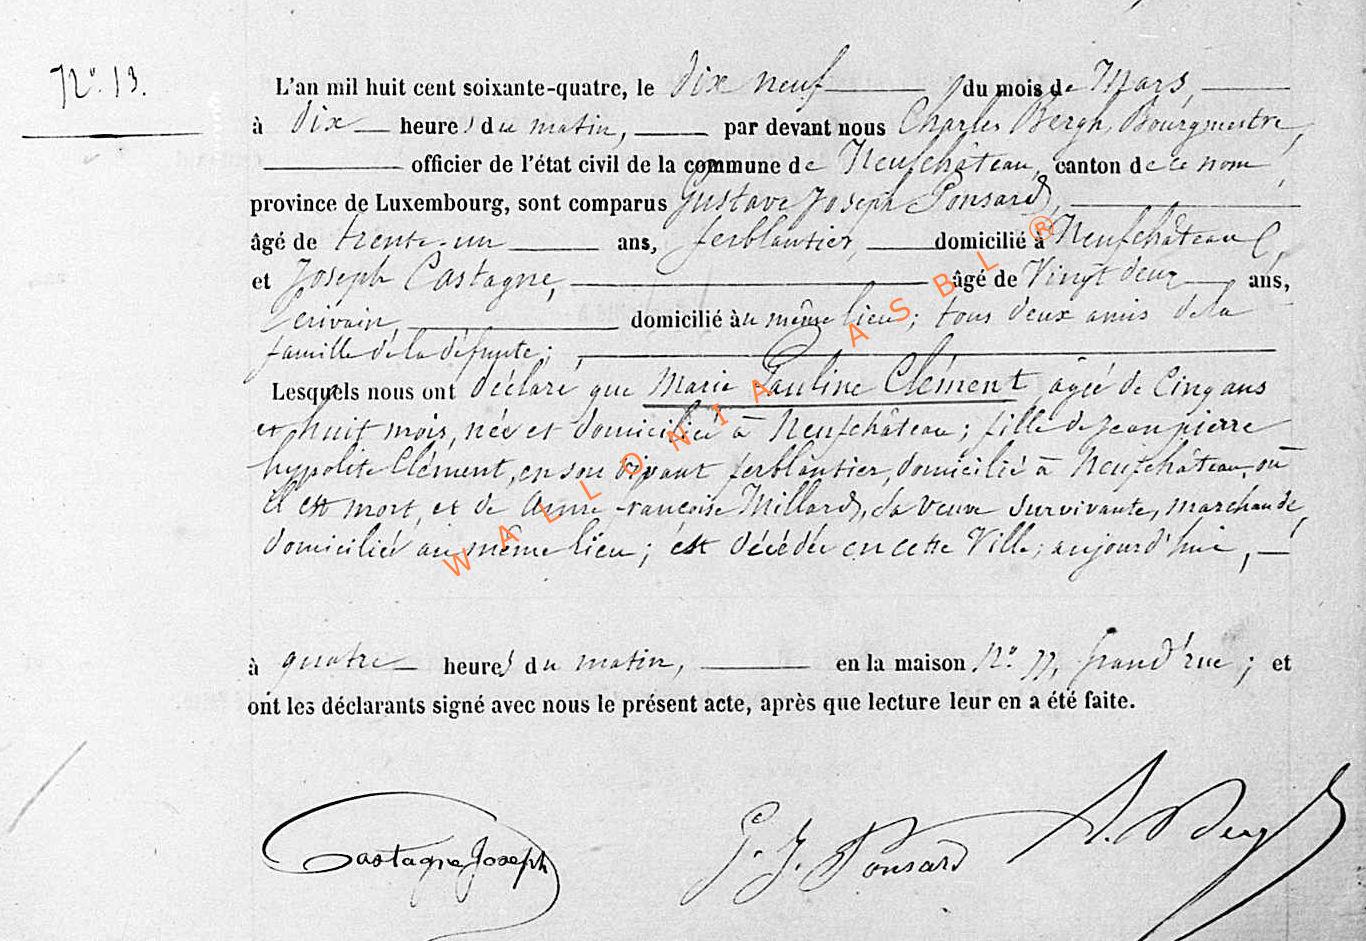 N° 13.
L'an mil huit cent soixante-quatre, le dix neuf du mois de Mars,
à dix heures du matin, par devant nous Charles Bergh, Bourgmestre,
officier de l'état civil de la commune de Neufchâteau, canton de ce nom,
province de Luxembourg, sont comparus Gustave Joseph Ponsard,
âgé de trente-un ans, ferblantier, domicilié à Neufchâteau,
et Joseph Castagne, âgé de Vingt deux ans,
Ecrivain, domicilié au même lieu; tous deux amis de la
famille de la défunte;
Lesquels nous ont déclaré que Marie Pauline Clément, agée de Cinq ans
et huit mois, née et domiciliée à Neufchâteau; fille de jean pierre
hypolite Clément, en son vivant ferblantier, domicilié à Neufchâteau où
il est mort, et de Anne françoise Millard, sa veuve survivante, marchande,
domiciliée au même lieu; est décédée en cette Ville; aujourd'hui,
à quatre heures du matin, en la maison N° 77, grand'rue; et
ont les déclarants signé avec nous le présent acte, après que lecture leur en a été faite.
Castagne Joseph
G. J. Ponsard
WALLONIA ASBL ®